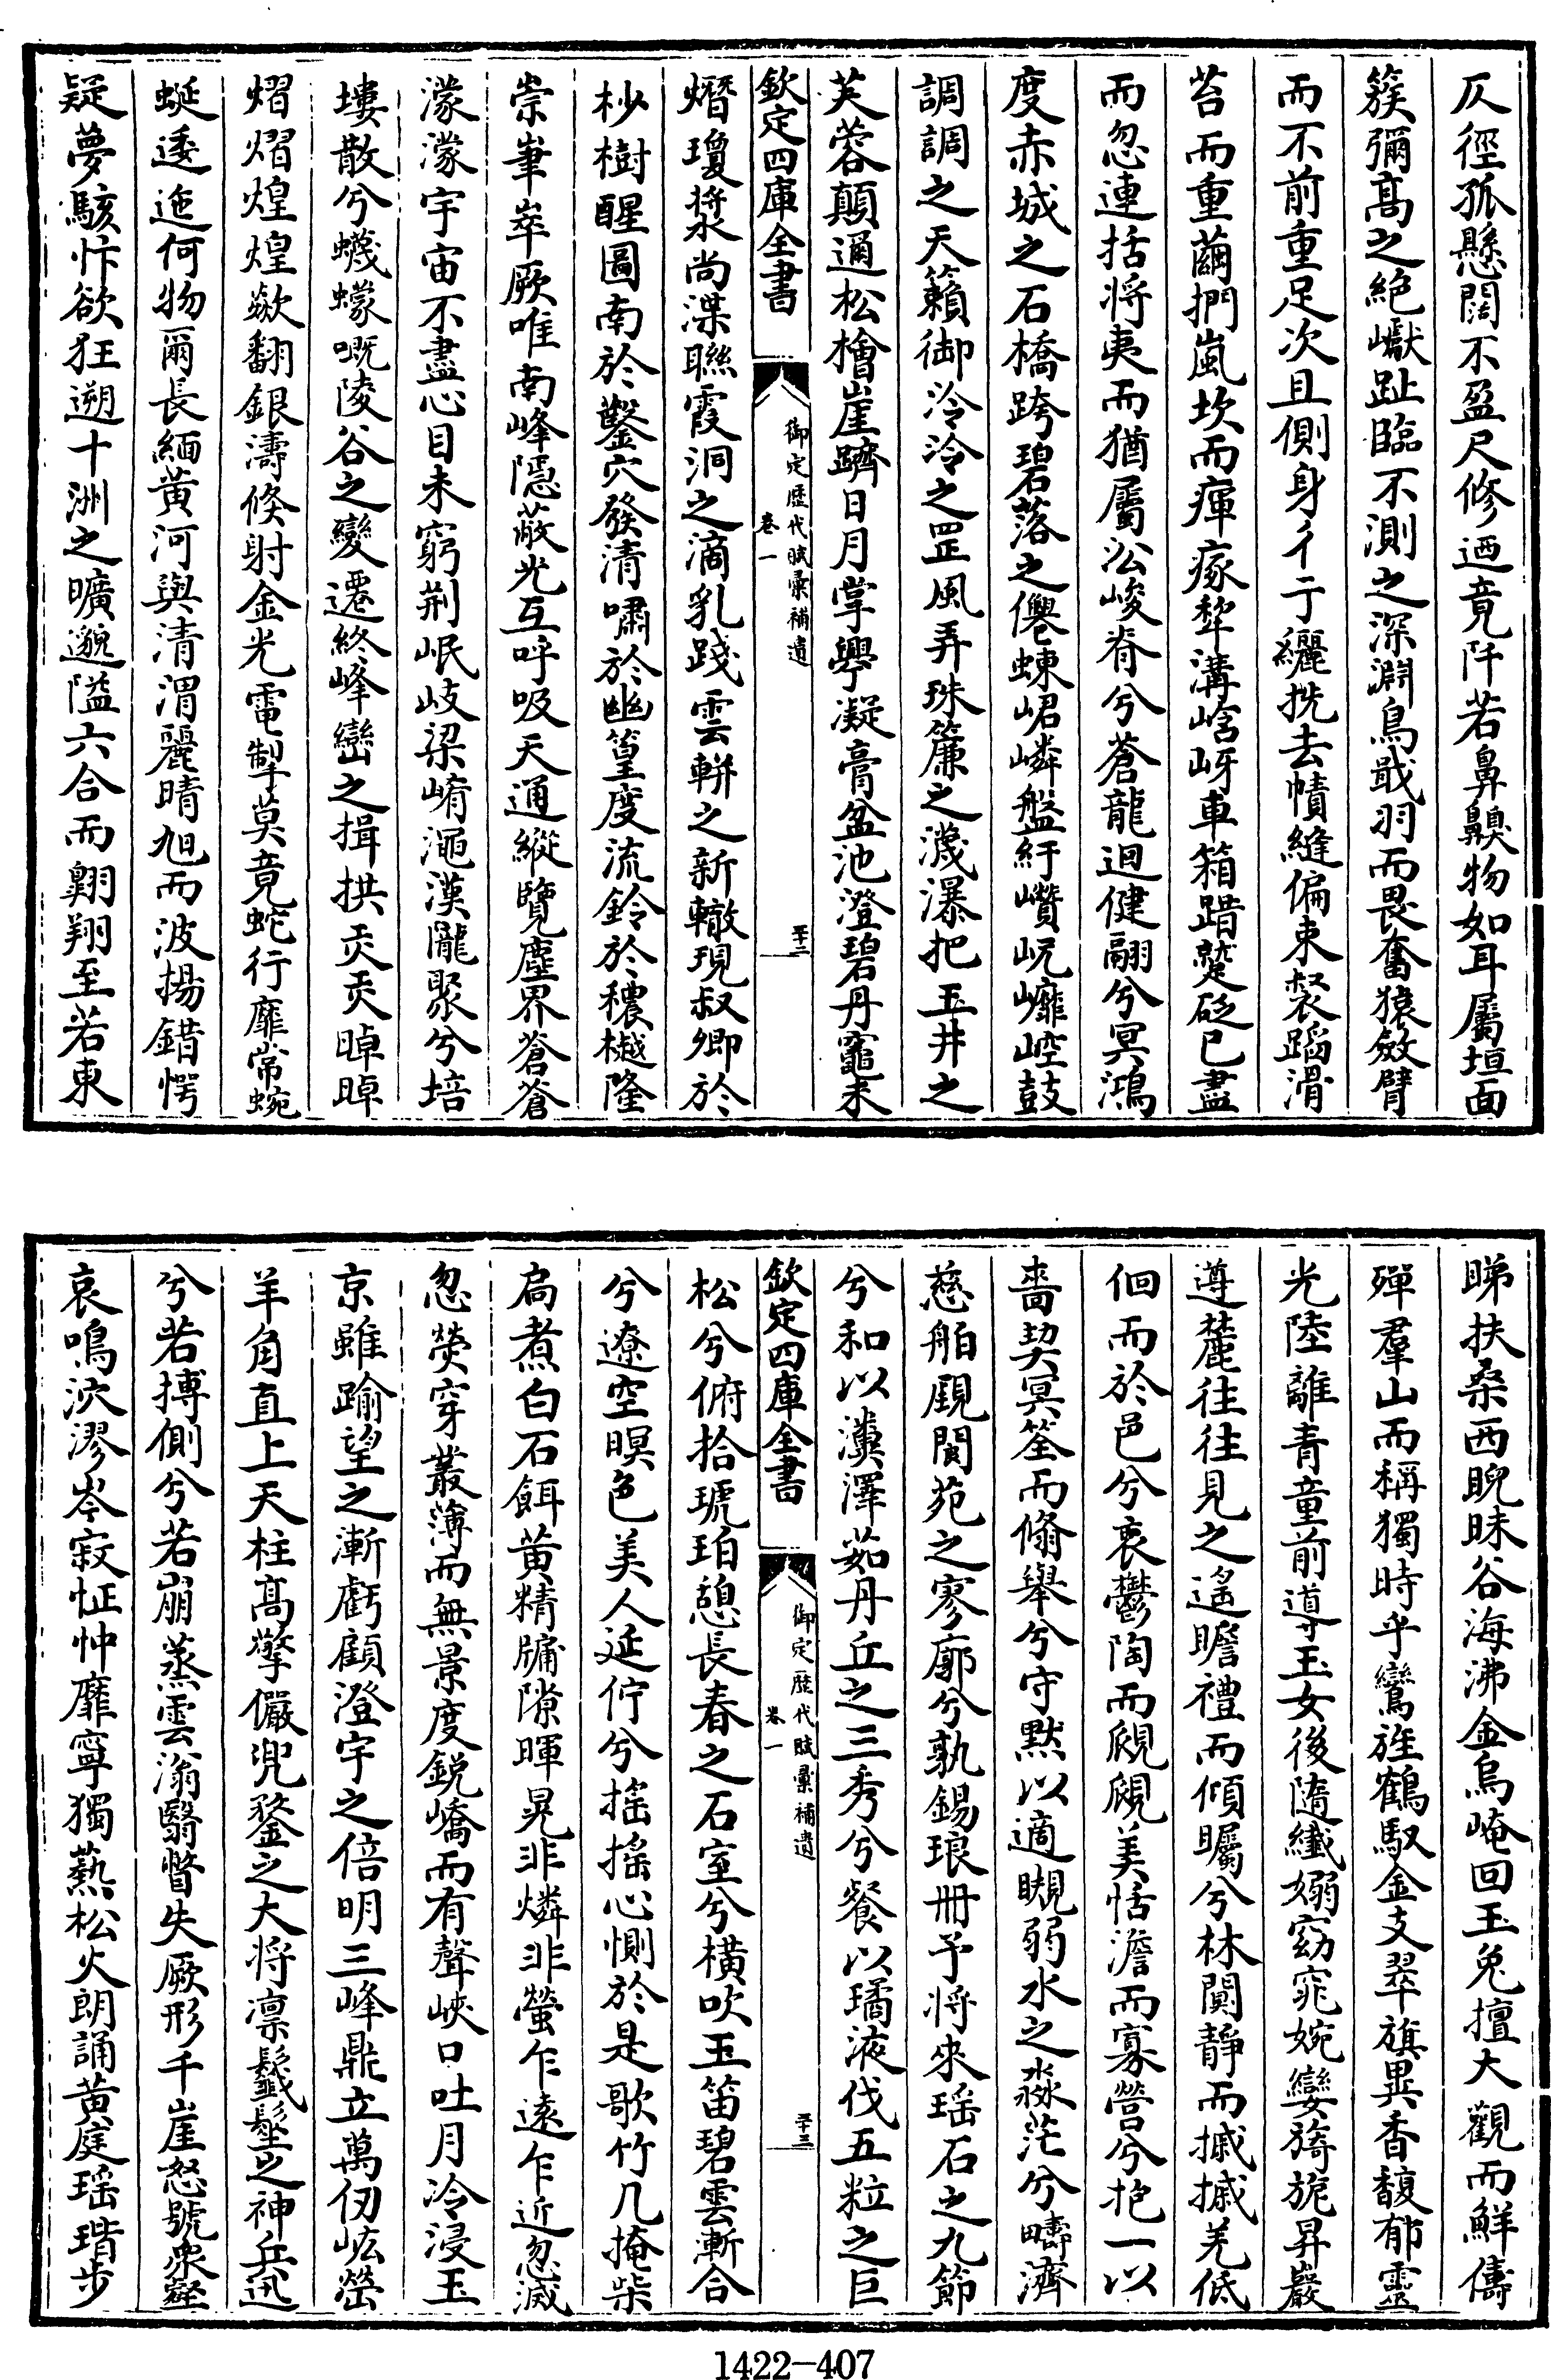 仄徑孤懸闊不盈尺修迺竟阡若鼻齅物如耳屬垣面
簇彌高之絕巘趾臨不測之深淵鳥戢羽而畏奮猿斂臂
而不前重足次且側身彳亍纚挩去幘縫偏束袈蹈滑
苔而重繭捫嵐坎而瘒瘃犂溝㟏岈車箱踖躠砭已盡
而忽連括將夷而猶屬㳂峻脊兮蒼龍迴健翮兮冥鴻
度赤城之石橋跨碧落之僊蝀峮嶙盤紆巑岏巘崆鼓
調調之天籟御泠泠之罡風弄珠簾之濺瀑把玉井之
芙蓉顛通松檜崖躋日月掌學凝膏盆池澄碧丹竈未
欽定四庫全書
御定歷代賦彙補遺
卷一
至十二
熸瓊漿尚渫聯霞洞之滴乳踐雲軿之新轍現叔卿於
杪樹醒圖南於鑿穴發清嘯於幽篁度流鈴於穠樾隆
崇崋崒厥唯南峰隱蔽光互呼吸天通縱覽塵界蒼蒼
濛濛宇宙不盡心目未窮荆岷岐梁崤澠漢隴聚兮培
塿散兮蠛蠓嘅陵谷之變遷終峰巒之揖拱炗炗晫晫
熠熠煌煌歘翻銀濤倏射金光電掣莫竟蛇行靡常蜿
蜒逶迤何物爾長緬黃河與清渭麗晴旭而波揚錯愕
疑夢駭忭欲狂遡十洲之曠邈隘六合而翺翔至若東
睇扶桑西睨昧谷海沸金烏崦回玉兔擅大觀而鮮儔
殫羣山而稱獨時乎鸞旌鶴馭金支翠旗異香馥郁靈
光陸離青童前導玉女後隨纖嫋窈窕婉孌旖旎昇巖
遵麓往往見之遙瞻禮而傾矚兮林闃靜而摵摵羌低
徊而於邑兮衷鬱陶而覙覙美恬澹而寡營兮抱一以
嗇契冥筌而翛舉兮守默以適覭弱水之淼茫兮疇濟
慈舶覭閬苑之寥廓兮孰錫琅冊予將來瑶石之九節
兮和以瀵澤茹丹丘之三秀兮餐以璚液伐五粒之巨
欽定四庫全書
御定歷代賦彙補遺
卷一
至十三
松兮俯拾琥珀憩長春之石室兮橫吹玉笛碧雲漸合
兮遼空暝色美人延佇兮搖搖心惻於是歌竹几掩柴
扃煮白石餌黃精牖隙暉晃非燐非螢乍遠乍近忽滅
忽熒穿叢薄而無景度銳嶠而有聲峽口吐月冷浸玉
京雖踰望之漸虧顧澄宇之倍明三峰鼎立萬仞峵嶜
羊角直上天柱高擎儼兜鍪之大將凛鬛髽之神兵迅
兮若搏側兮若崩蒸雲滃翳瞥失厥形千崖怒號衆壑
哀鳴泬漻岑寂怔忡靡寧獨爇松火朗誦黃庭瑶瑎步
1422—407